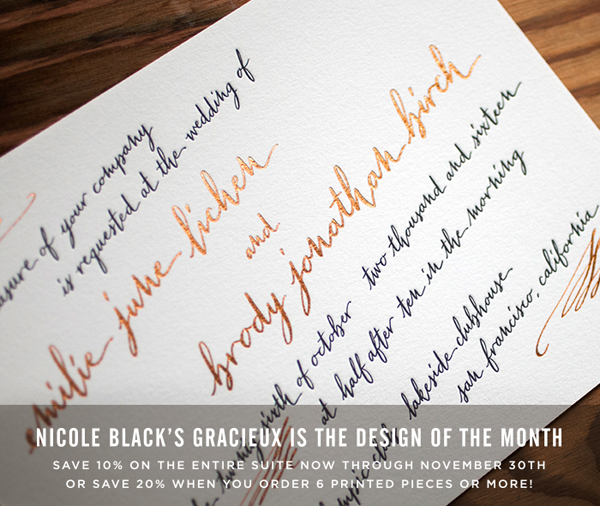 asure of your company
is requested at the wedding of
emilie june lichen
and
brody jonathan birch
of october two thousand and sixteen
at half after ten in the morning
club lakeside clubhouse
san francisco, california
NICOLE BLACK'S GRACIEUX IS THE DESIGN OF THE MONTH
SAVE 10% ON THE ENTIRE SUITE NOW THROUGH NOVEMBER 30TH
OR SAVE 20% WHEN YOU ORDER 6 PRINTED PIECES OR MORE!